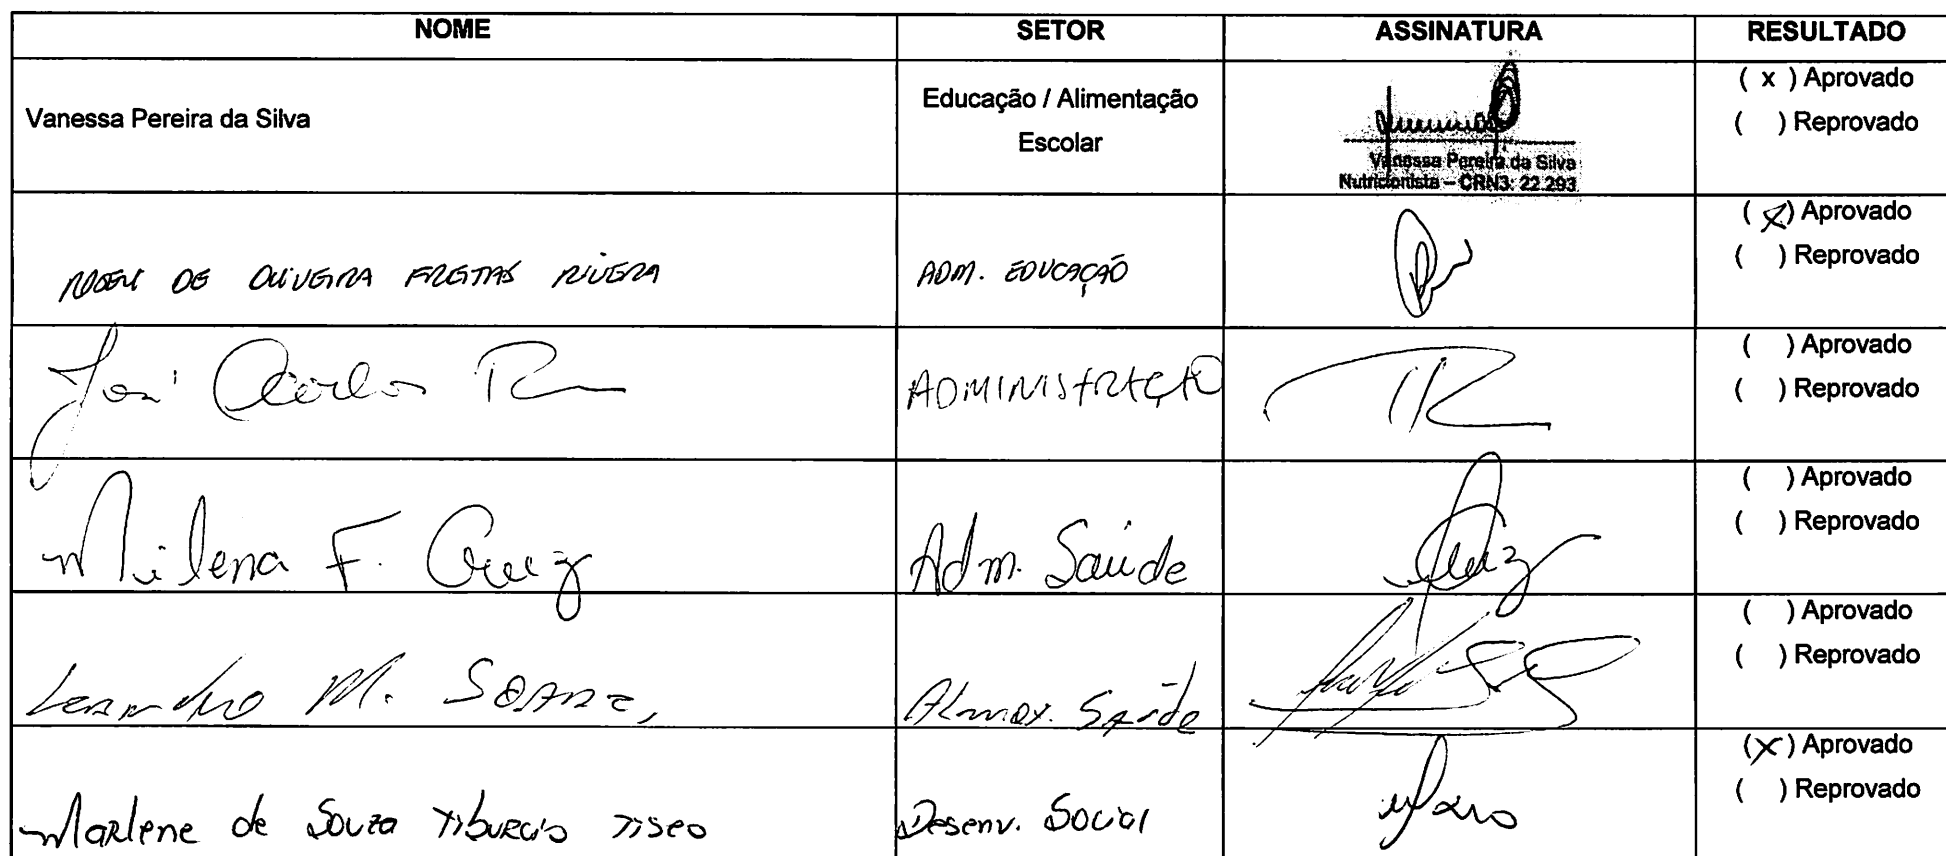 NOME SETOR ASSINATURA RESULTADO
Vanessa Pereira da Silva
Educação / Alimentação
Escolar
Vanessa Pereira da Silva
Nutricionista – CRN3: 22.293
( x ) Aprovado
( ) Reprovado
DE OLIVEIRA FREITAS RIVERA
ADM. EDUCAÇÃO
(x) Aprovado
( ) Reprovado
José Carlos
ADMINISTRAÇÃO
( ) Aprovado
( ) Reprovado
Milena F. Cruz
Adm. Saúde
Cruz
( ) Aprovado
( ) Reprovado
Leandro M.
Almox. Saúde
( ) Aprovado
( ) Reprovado
Marlene de Souza Tiburcio Tiseo
Desenv. Social
(x) Aprovado
( ) Reprovado